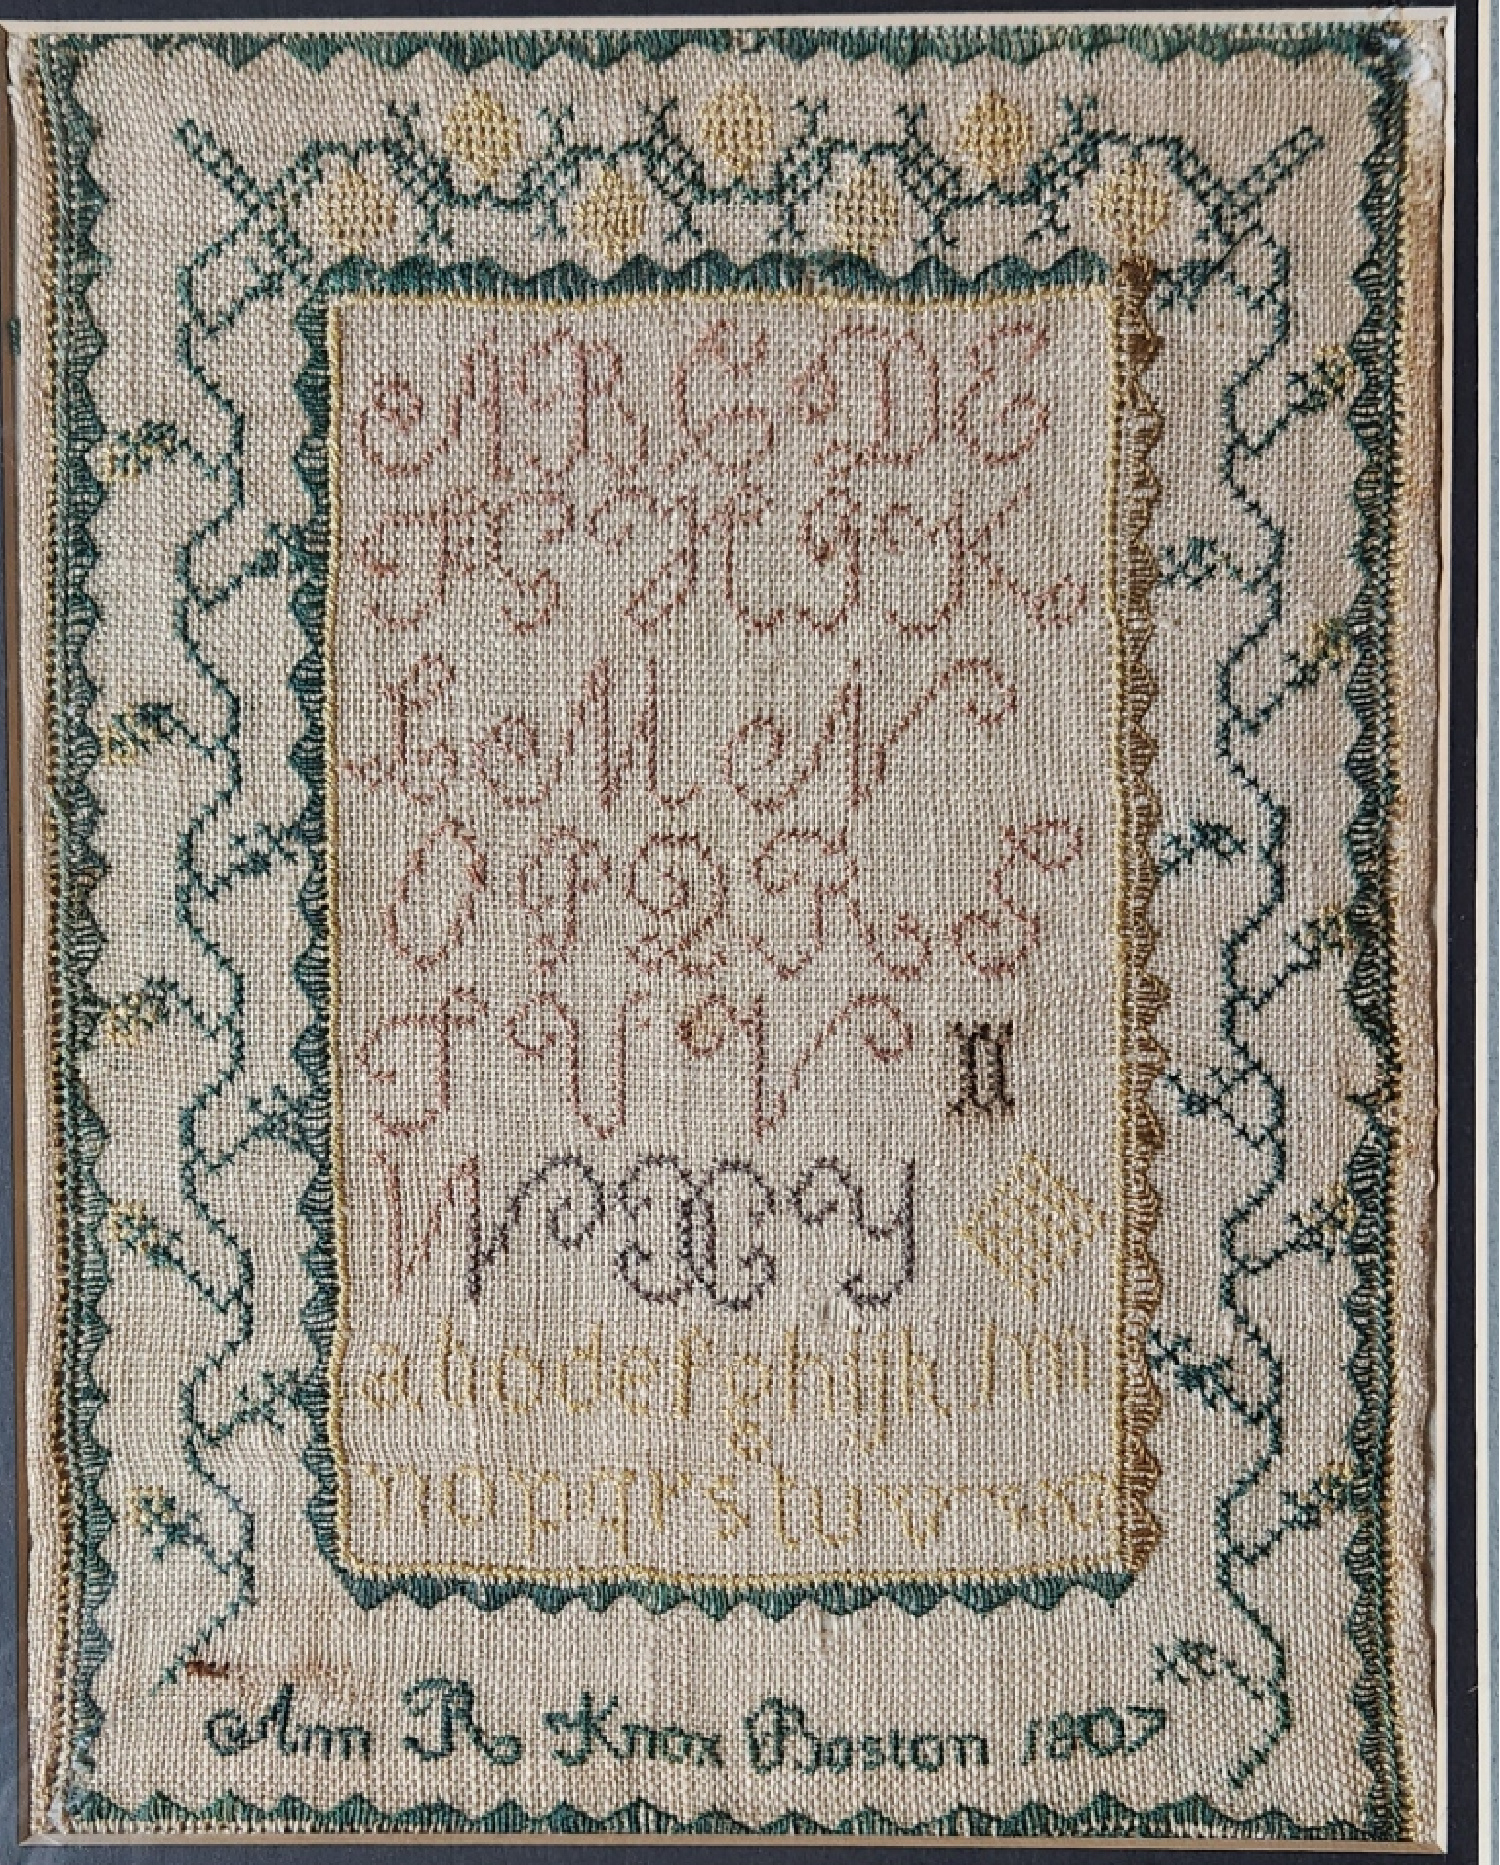 A B C D E
F G H I K
L M N
O P Q R S
T U V
W X Y
abcdefghijklm
nopqrstuv
Ann R Knox Boston 1807